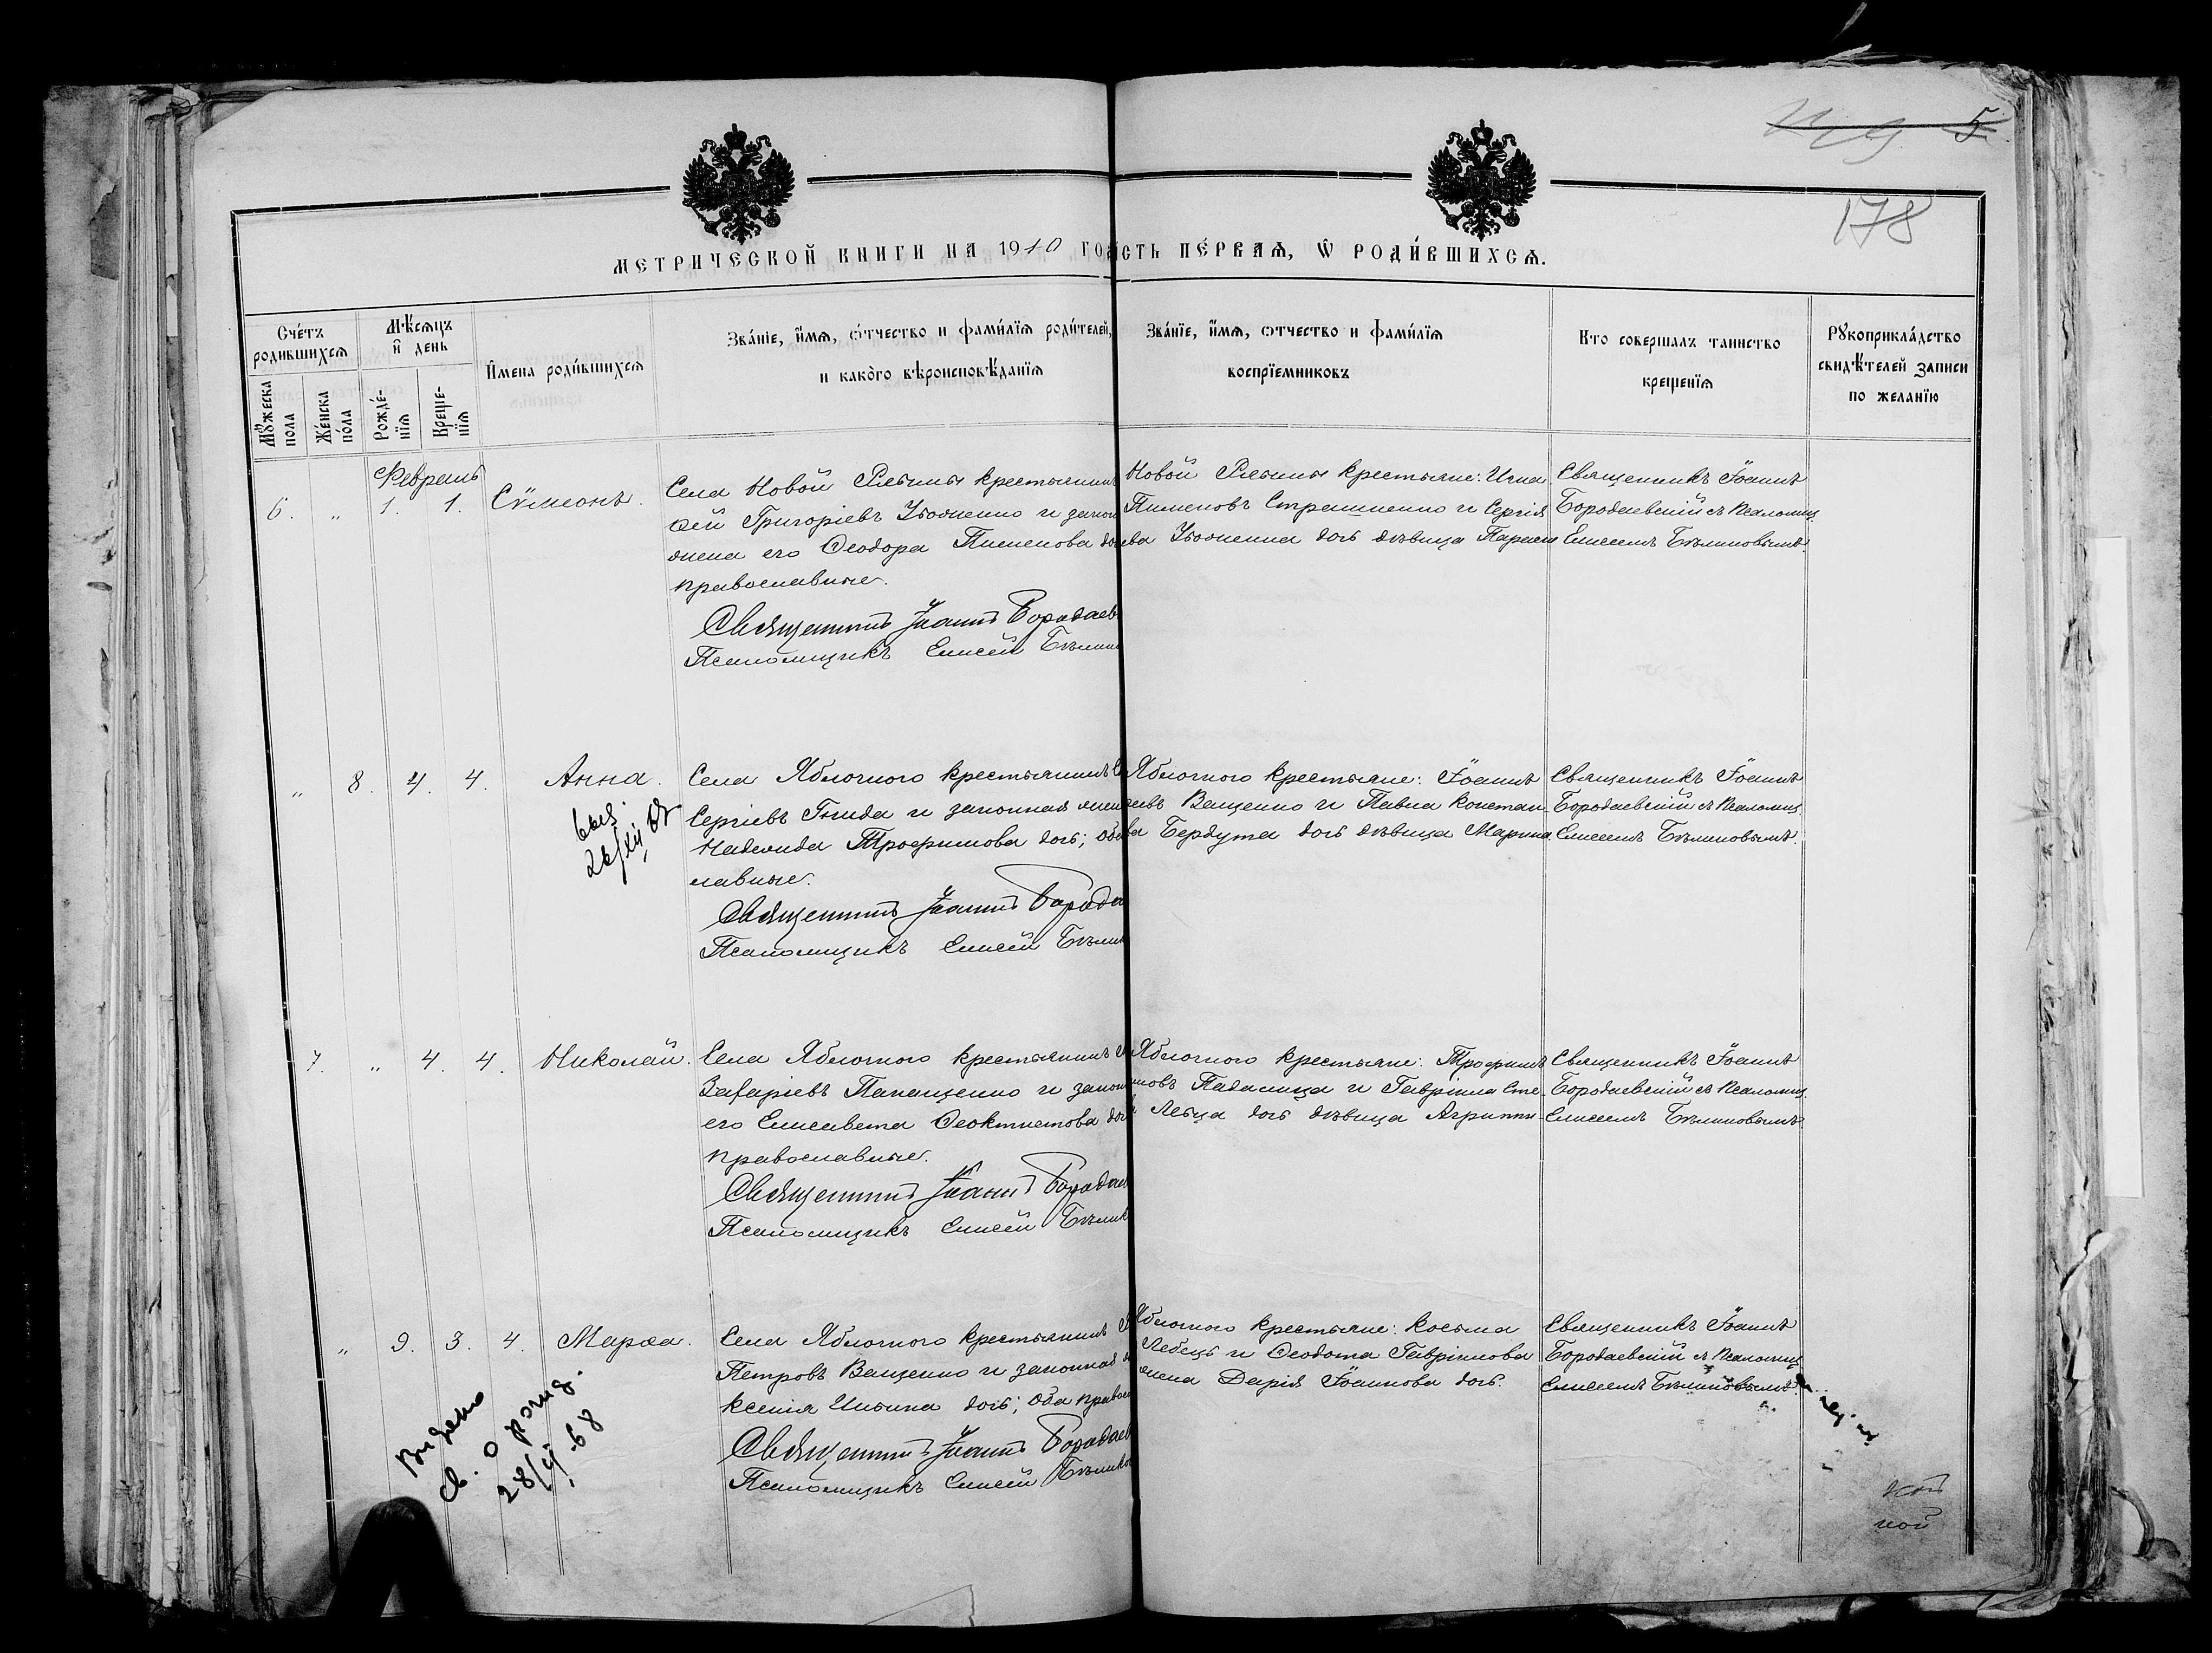 5
178
МЕТРИЧЕСКОЙ КНИГИ НА 1910 ГО
СТЬ ПЕ́РВАѦ, Ѿ РОДИ́ВШИХСѦ.
Сче́тъ родившихсѧ
Мѣ́сѧцъ и҆ день
Мꙋ́жеска пола
Же́нска по́ла
Рожде́-нїѧ
Креще-нїѧ
И҆мена роди́вшихсѧ
Зва́нїе, и҆́мѧ, ѻ҆́тчество и фами́лїѧ роди́телей,
и како́го вѣроисповѣ́данїѧ
Зва́нїе, и҆́мѧ, ѻтчество и фами́лїѧ
воспрїемниковъ
Кто совершалъ таинство
крещенїѧ
Рꙋкоприкла́дство
свидѣ́телей записи
по желанїю
Февраль
6. „ 1. 1. Сѵмеонъ.
Села Новой Рябины крестьянинъ
Григоріевъ и закон
жена его Ѳеодора Пименова до
православные.
Священникъ Іоаннъ Бородаев
Псаломщикъ Елисей Бѣлин
Новой Рябины крестьяне: Игна
Пименовъ Страшненко и Сергія
ева дочь дѣвица Параск
Священникъ Іоаннъ
Бородаевскій съ псаломщ.
Елисеемъ Бѣлиновымъ.
„ 8. 4. 4. Анна.
26/XII
Села Яблочного крестьянинъ
Сергіевъ Гнида и законная жен
Надежда Трофимова дочь; оба
лавные.
Священникъ Іоаннъ Борода
Псаломщикъ Елисей Бѣлин
Яблочного крестьяне: Іоаннъ
евъ Ващенко и Павла Констан
ва Бердута дочь дѣвица Марина.
Священникъ Іоаннъ
Бородаевскій съ псаломщ.
Елисеемъ Бѣлиновымъ.
7. „ 4. 4. Николай.
Села Яблочного крестьянинъ
Захаріевъ Панащенко и закон
его Елисавета Ѳеоктистова до
православные.
Священникъ Іоаннъ Бородаев
Псаломщикъ Елисей Бѣлин
Яблочного крестьяне: Трофимъ
новъ Падалица и Гавріила Сте
Лебца дочь дѣвица Агриппи
Священникъ Іоаннъ
Бородаевскій съ псаломщ.
Елисеемъ Бѣлиновымъ
„ 9. 3. 4. Марѳа.
св. о рожд.
Села Яблочного крестьянинъ
Петровъ Ващенко и законная
ксенія Ильина дочь; оба правос
Священникъ Іоаннъ Бородаев
Псаломщикъ Елисей Бѣлинов
Яблочного крестьяне: Косьма
Лебець и Ѳеодота Гавріилова
жена Дарія Іоаннова дочь.
Священникъ Іоаннъ
Бородаевскій съ псаломщ.
Елисеемъ Бѣлиновымъ
ной